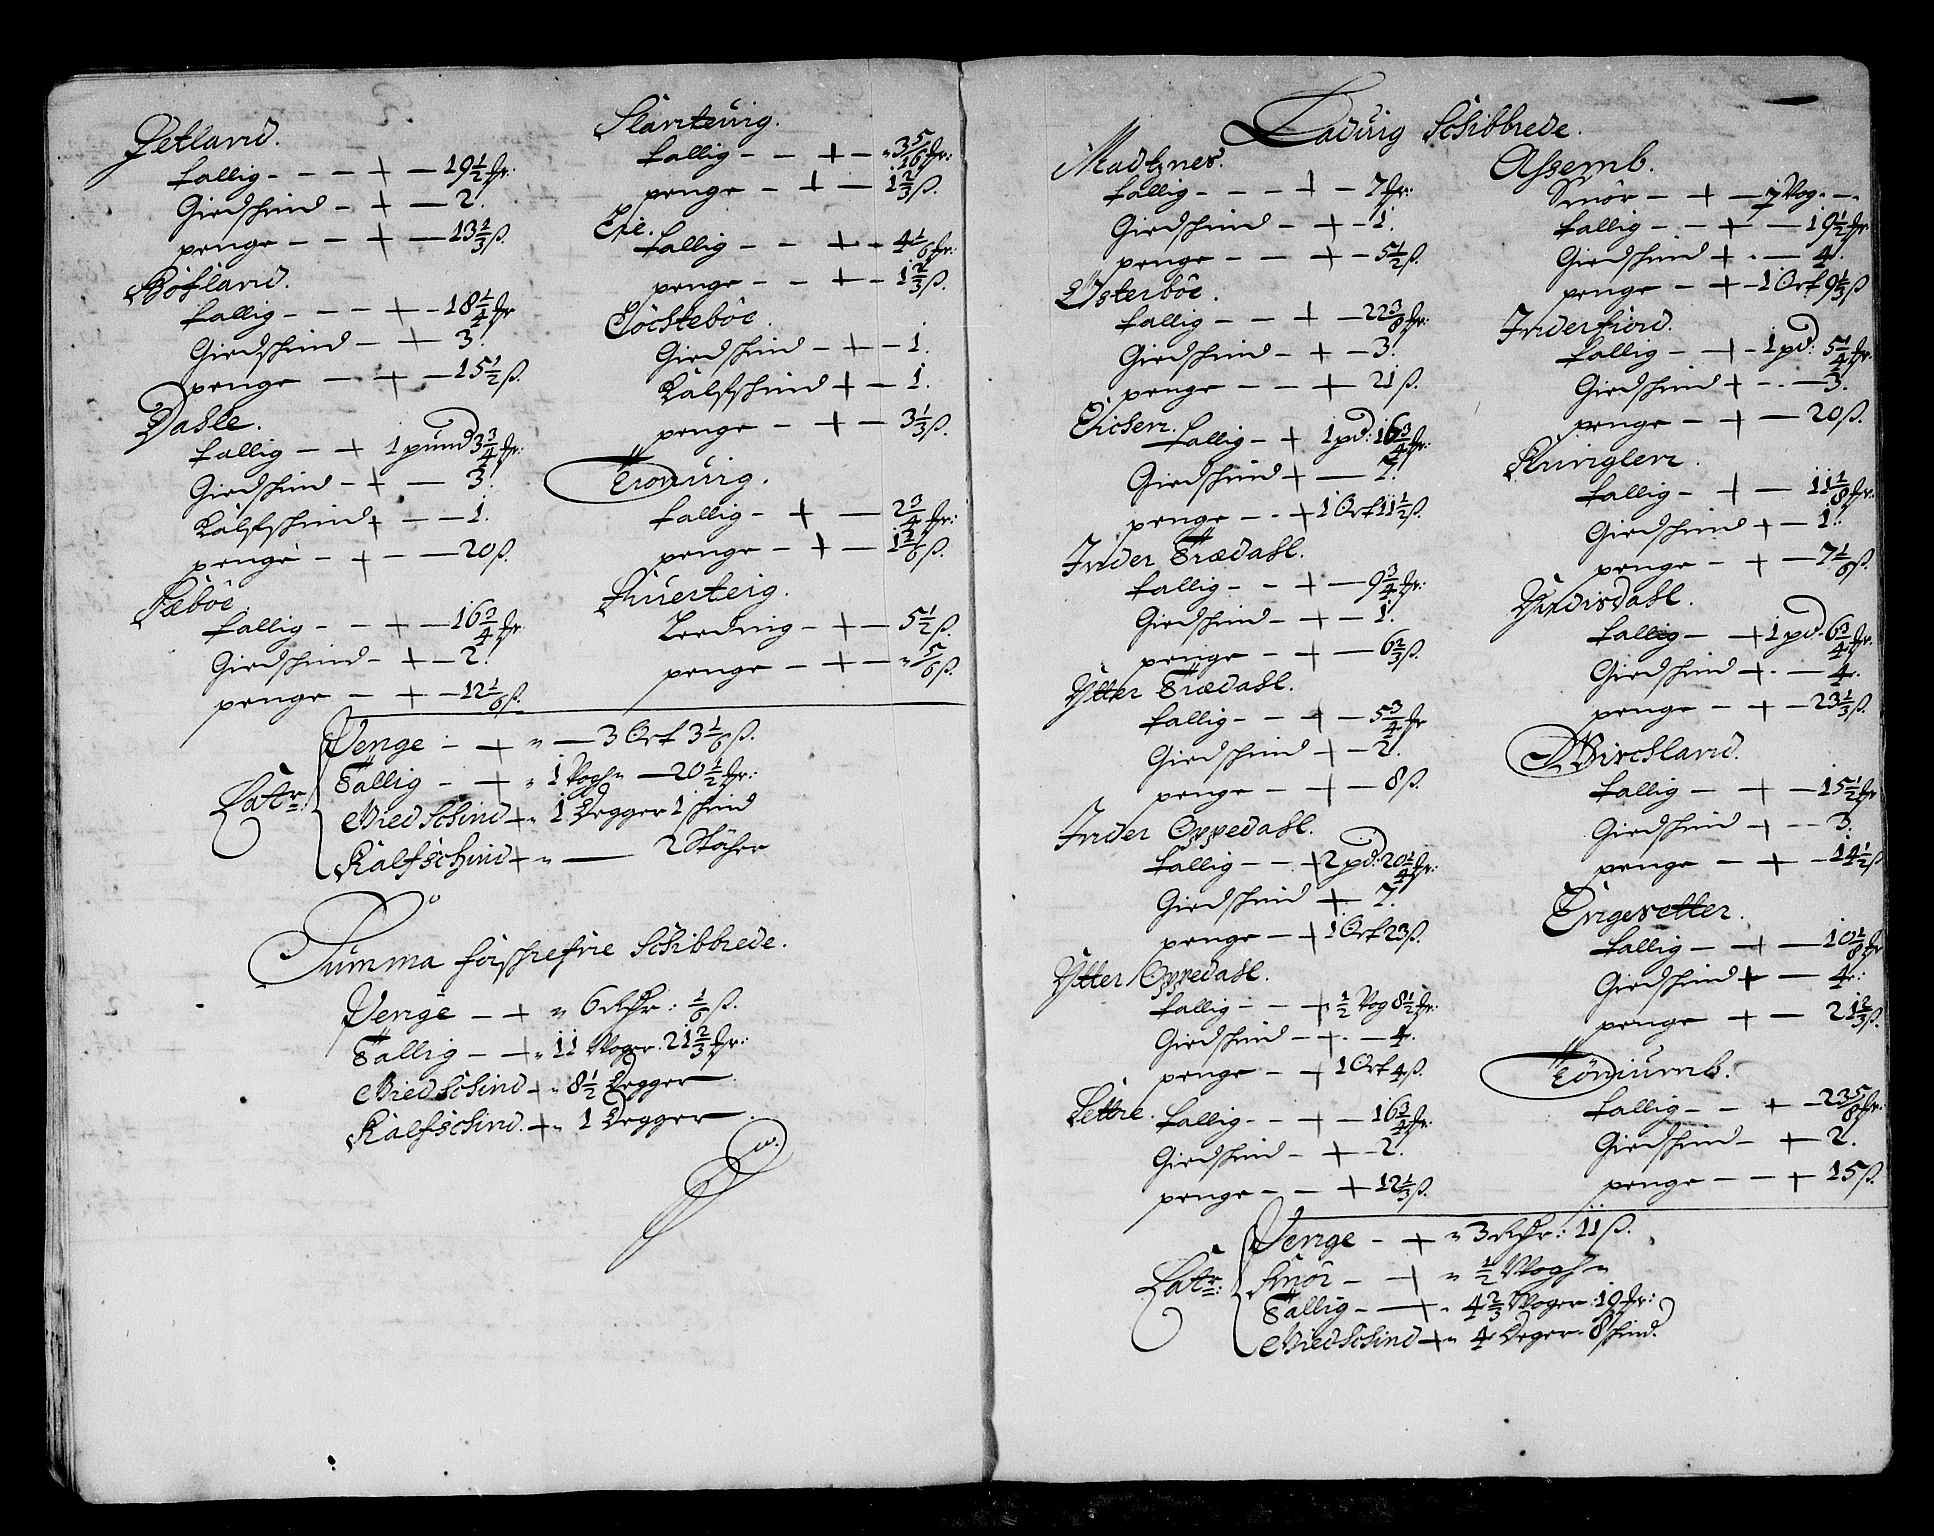 Jetland.
fallig - - - + - 19 1/2 fr:
Giedskind - + - 2.
penge - - + - 13 1/3 ß.
Böfland.
fallig - - - + - 18 1/4 fr
Giedskind - + - 3.
penge - + - 15 1/2 ß.
Dahle.
fallig - + 1 pund 3 3/4 fr:
Giedskind - + - 3.
Kalfskind + - - 1.
penge - + - - 20 ß.
Sæböe
fallig - - + - 16 3/4 fr
Giedskind - + - 2.
penge - + - 12 1/6 ß.
Slanteuig.
fallig - - + - " 3 5/16 fr:
penge - + - 1 2/3 ß.
Eie.
fallig - - + - 4 1/6 fr:
penge - - + - 1 2/3 ß.
Göchteböe.
Giedskind - + - 1.
Kalfskind + - 1.
penge - + - 3 1/3 ß.
Tronuig.
fallig - + - 2 3/4 fr:
penge - + - 1 2/6 ß.
Huerteig.
Leeding - + - 5 1/2 ß.
penge - + - " 5/6 ß.
Latr:
Penge - + " - 3 Ort 3 1/6 ß.
Tallig - + " 1 Vogh " - 20 1/2 fr:
Giedschind + " 1 Degger 1 skind
Kalfschind + " - 2 Stöher
Summa forskrefne Schibbrede.
Penge - + " 6 Rdr: 1/6 ß.
Tallig - + " 11 Woger. 21 2/3 fr:
Giedschind + " 8 1/2 Degger
Kalfschind. + " 1 Degger
Laduig Schibbrede.
Madtznes.
fallig - - - + - 7 fr:
Giedskind - + - 1.
penge - - + - 5 1/2 ß.
Österböe.
fallig - - + - 22 3/8 fr:
Giedskind - + - 3.
penge - - + - 21 ß.
Eichen.
fallig - + 1 pd: 16 3/4 fr:
Giedskind + - 7.
penge - - + 1 Ort 11 1/2 ß.
Inder Trædahl.
fallig - - + - 9 3/4 fr:
Giedskind - + - 1.
penge - + - 6 2/3 ß.
Ytter Trædahl.
fallig - - + - 5 3/4 fr
Giedskind + - 2.
penge - + - 8 ß.
Inder Oppedahl.
fallig - - + 2 pd: 20 1/4 fr:
Giedskind + - 7.
penge - + 1 Ort 23 ß.
Ytter Oppedahl.
fallig - - + 1/2 Vog 8 1/2 fr:
Giedskind - + - 4.
penge - + 1 Ort 4 ß.
Lettre.
fallig - - + - 16 3/4 fr:
Giedskind - + - 2.
penge - - + 12 1/3 ß.
Assemb.
Smör - + - 7 Vog. - -
fallig - - + - 19 1/2 fr
Giedskind + - 4.
penge - + - 1 Ort 9 1/3 ß
Inderfiord.
fallig - + - 1 pd: 5 1/4 fr
Giedskind + - - 3.
penge - + - 20 ß.
Kringlen.
fallig - + - 11 1/8 fr:
Giedskind + - 1.
penge - + - 7 1/6 ß.
Yndisdahl.
fallig - + 1 pd. 6 3/4 fr:
Giedskind + - - 4.
penge - + - 23 1/3 ß.
Birchland.
fallig - + - 15 1/2 fr
Giedskind + - - 3.
penge - + - 14 1/2 ß
Engesetter.
fallig - + - 10 1/8 fr
Giedskind + - 4.
penge + - 21 2/3 ß.
Töniumb.
fallig - - + - 23 5/8 fr:
Giedskind - + 2.
penge - - + 15 ß.
Latr:
Penge - + " 3 Rdr: 11 ß.
Smör - + " 1/2 Wogh "
Tallig - + . 4 2/3 Woger . 19 fr:
Giedschind + " 4 Deger " 8 skind.